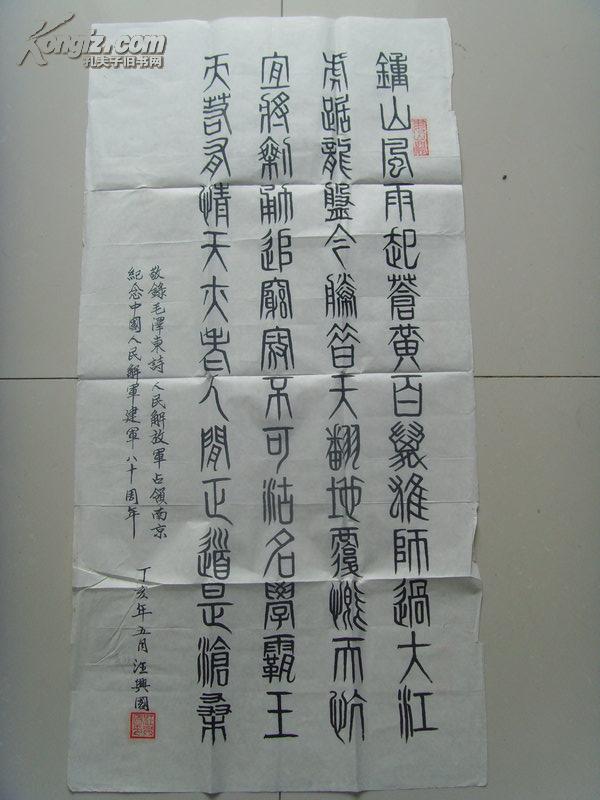 Kongfz.com
孔夫子旧书网
鍾山風雨起蒼黄百萬雄師過大江
虎踞龍盤今勝昔天翻地覆慨而忼
宜將剩勇追窮寇不可沽名學霸王
天若有情天亦老人間正道是滄桑
敬錄毛澤東詩人民解放軍占領南京
紀念中國人民解放軍建軍八十周年
丁亥年五月汪興國